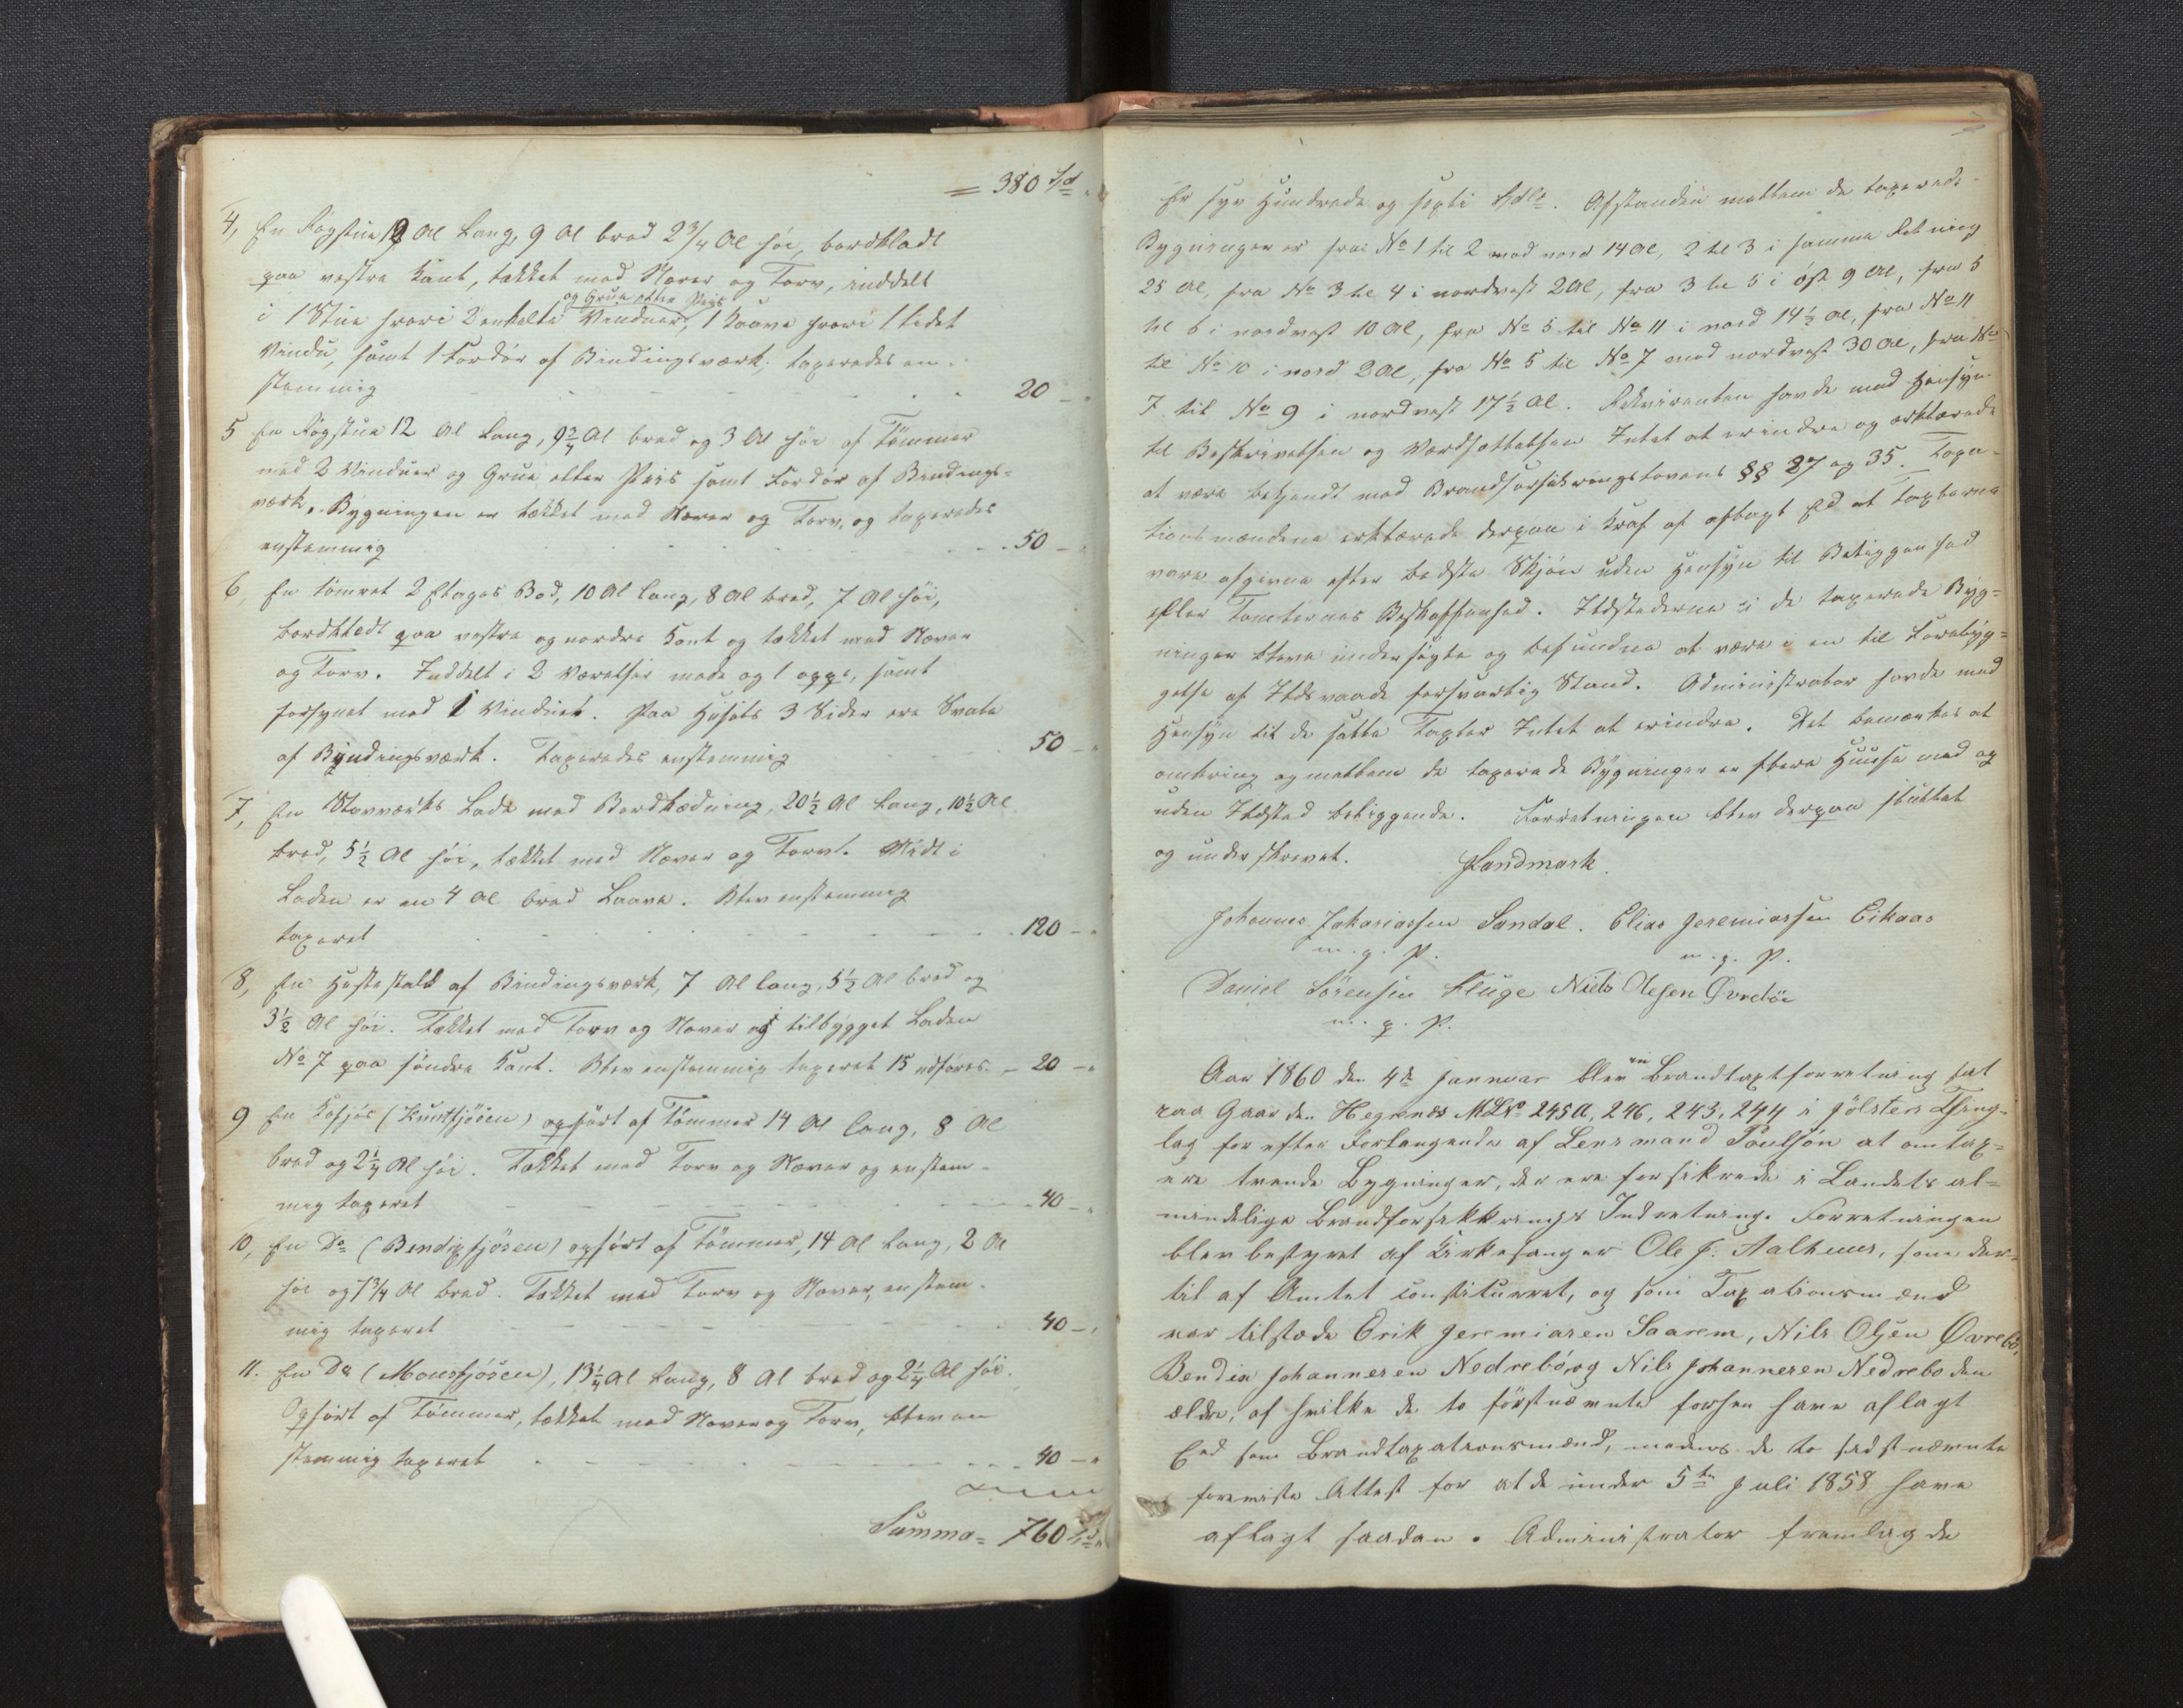 = 380 Spd "
4, En Røgstue 12 Al lang, 9 Al bred 2 3/4 Al høi, bordklædt
paa vestre Kant, tækket med Næver og Torv, inddelt
og Grue etter Peis
i 1 Stue hvori 2 enkelte Vinduer, 1 Kaave hvori 1 lidet
Vindu, samt 1 Fordør af Bindingsværk; taxeredes en-
stemmig 20 - "
5 En Røgstue 12 Al lang, 9 3/4 Al bred og 3 Al høi af Tømmer
med 2 Vinduer og Grue eller Peis samt Fordør af Bindings-
værk. Bygningen er tækket med Næver og Torv, og taxeredes
enstemmig 50 - "
6, En tømret 2 Etages Bod, 10 Al lang, 8 Al bred, 7 Al høi,
bordklædt paa vestre og nordre Kant og tækket med Næver
og Torv. Inddelt i 2 Værelser nede og 1 oppe, samt
forsynet med 1 Vinduet. Paa Husets 3 Sider ere Svale
af Byndingsværk. Taxeredes enstemmig 50 - "
7, En Stavværks Lade med Bordklædning, 20 1/2 Al lang, 10 1/2 Al
bred, 5 1/2 Al høi, tækket med Næver og Torv. Midt i
Laden er en 4 Al bred Laave. Blev enstemmig
taxeret 120 - "
8, En Hestestald af Bindingsværk, 7 Al lang, 5 1/2 Al bred og
3 1/2 Al høi. Tækket med Torv og Næver og tilbygget Laden
No 7 paa søndre Kant. Blev enstemmig taxeret 15 udføres - 20 - "
9 En Kofjøs (Kuufjøsen) opført af Tømmer 14 Al lang, 8 Al
bred og 2 1/4 Al høi. Tækket med Torv og Næver og enstem-
mig taxeret 40 - "
10, En Do (Bendixfjøsen) opført af Tømmer, 14 Al lang, 2 Al
høi og 7 3/4 Al bred. Tækket med Torv og Næver, enstem-
mig taxeret 40 - "
11. En Do (Monsfjøsen), 13 1/4 Al lang, 8 Al bred og 2 1/4 Al høi.
Opført af Tømmer, tækket med Næver og Torv, blev en
stemmig taxeret 40 - "
Summa = 760 Spd "
Er syv Hundrede og sexti Spdlr. Afstanden mellem de taxerede
Bygninger er fra No 1 til 2 mod nord 14 Al, 2 til 3 i samme Retning
25 Al, fra No 3 til 4 i nordvest 2 Al, fra 3 til 5 i øst 9 Al, fra 5
til 6 i nordvest 10 Al, fra No 5 til No 11 i nord 14 1/2 Al, fra No 11
til No 10 i nord 2 Al, fra No 5 til No 7 mod nordvest 30 Al, fra No
7 til No 9 i nordvest 17 1/2 Al. Rekvirenten havde med Hensyn
til Beskrivelsen og Værdsættelsen Intet at erindre og erklærede
at være bekjendt med Brandforsikringslovens §§ 27 og 35. Taxa-
tionsmændene erklærede derpaa i Kraft af aflagt Ed at Taxterne
vare afgivne efter bedste Skjøn uden Hensyn til Beliggenhed
eller Tomternes Beskaffenhed. Ildstederne i de taxerede Byg-
ninger bleve undersøgte og befundne at være i en til Forebyg-
gelse af Ildsvaade forsvarlig Stand. Administrator havde med
Hensyn til de satte Taxter Intet at erindre. Det bemærkes at
omkring og mellem de taxerede Bygninger er flere Huuse med og
uden Ildsted beliggende. Forretningen blev derpaa sluttet
og underskrevet. Landmark.
Johannes Zakariassen Sandal. Elias Jeremiassen Eikaas
m. p. P. m. p. P.
Daniel Sørensen Kluge Niels Olesen Øvrebøe
m. p. P.
Aar 1860 den 4de Januar blev en Brandtaxtforretning sat
paa Gaarden Hegrenæs MLNo 245a, 246, 243, 244 i Jølsters Thing-
lag for efter Forlangende af Lensmand Poulsøn at omtax-
ere trende Bygninger, der ere forsikrede i Landets al-
mindelige Brandforsikkrings Indretning. Forretningen
blev bestyret af Kirkesanger Ole J. Aalhuus, som der-
til af Amtet constitueret, og som Taxationsmænd
var tilstæde Erik Jeremiasen Saarem, Nils Olsen Øvrebø,
Bendix Johannesen Nedrebø, og Nils Johannesen Nedrebø den
ældre, af hvilke de to førstnævnte forhen have aflagt
Eed som Brandtaxationsmænd, medens de to sidstnævnte
foreviste Attest for at de under 5te Juli 1858 have
aflagt saadan. Administrator fremlagde